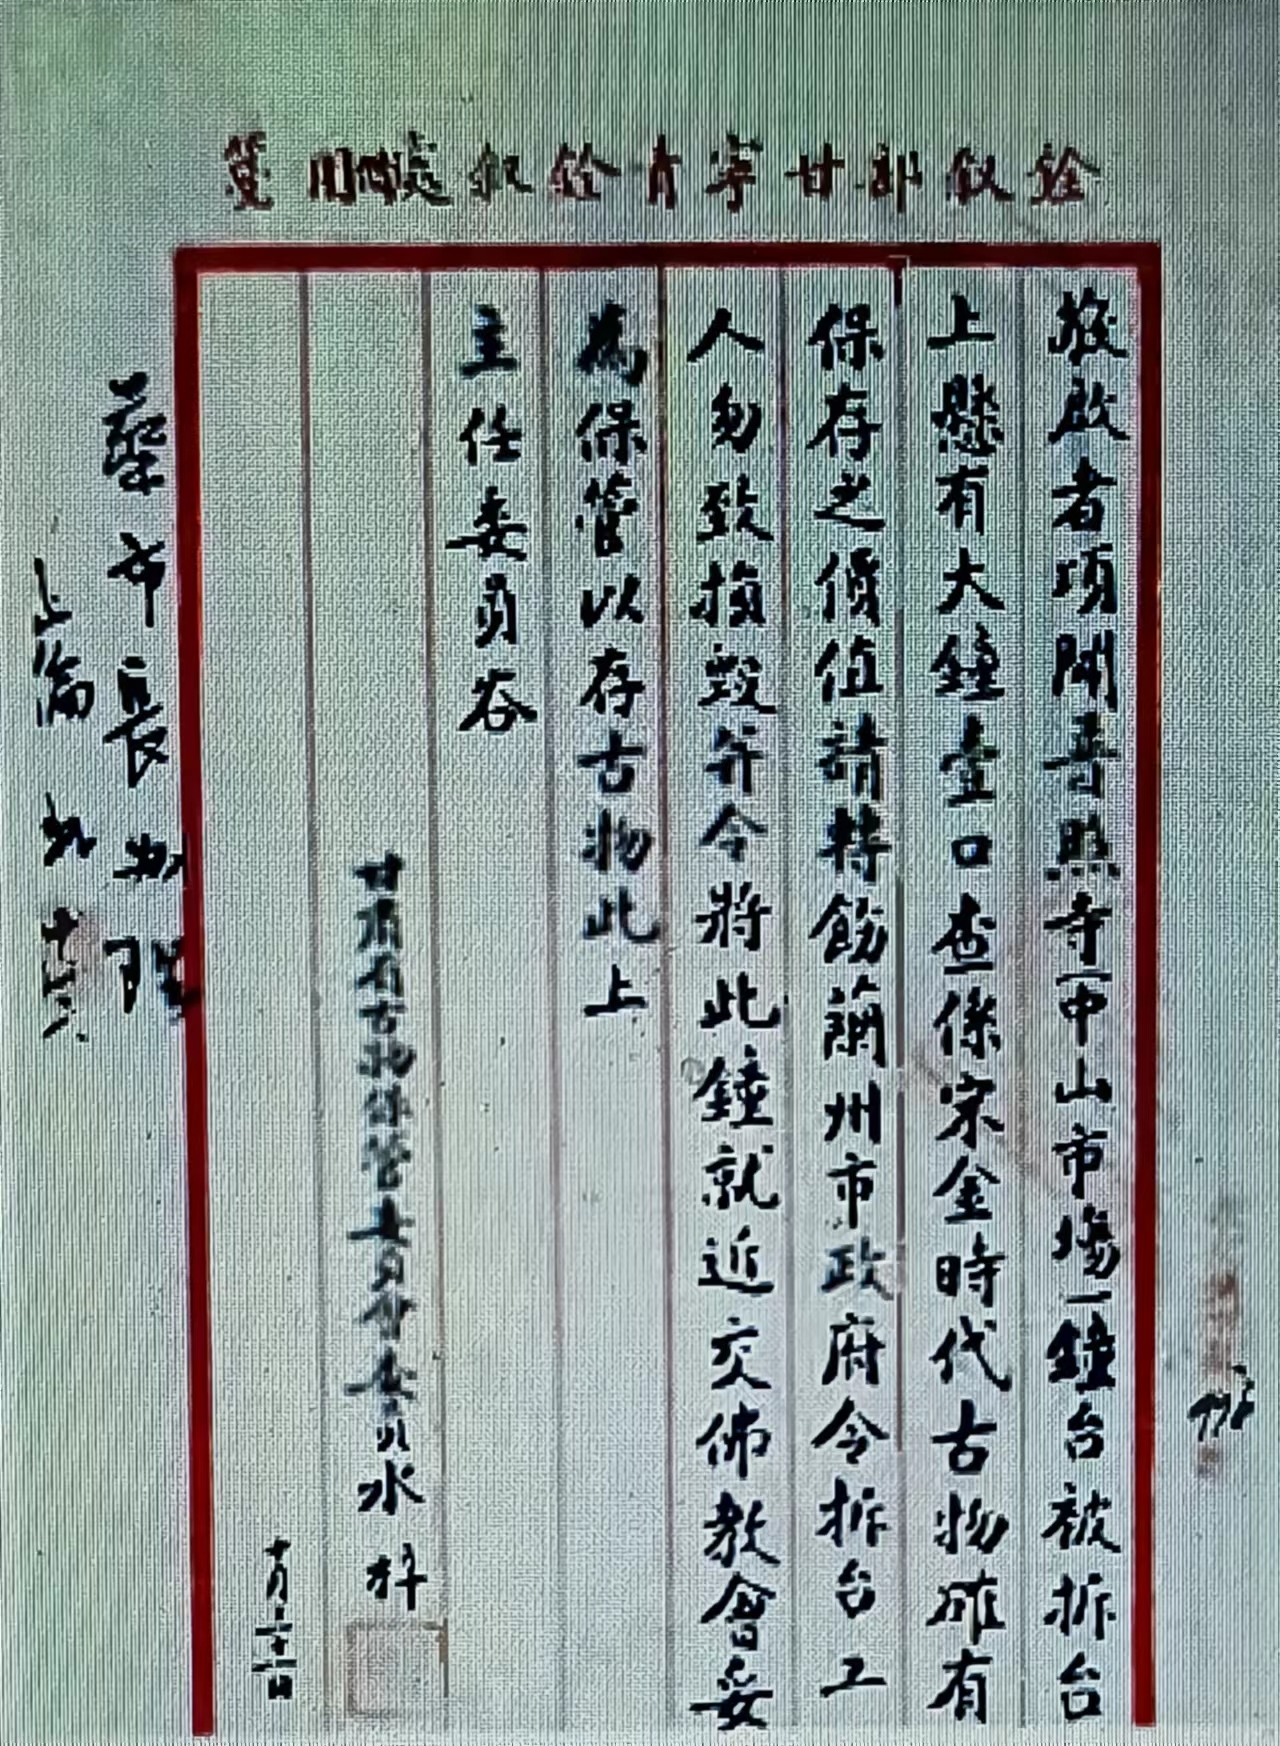 銓敘部甘寧青銓敘處備用箋
敬啟者項聞普照寺(中山市場)鐘台被拆台
上懸有大鐘壹口查係宋金時代古物確有
保存之價值請轉飭蘭州市政府令拆台工
人勿致損毀并令將此鐘就近交佛教會妥
為保管以存古物此上
主任委員谷
甘肅省古物保管委員會委員水梓
十月二十一日
蔡市長辦理
正倫